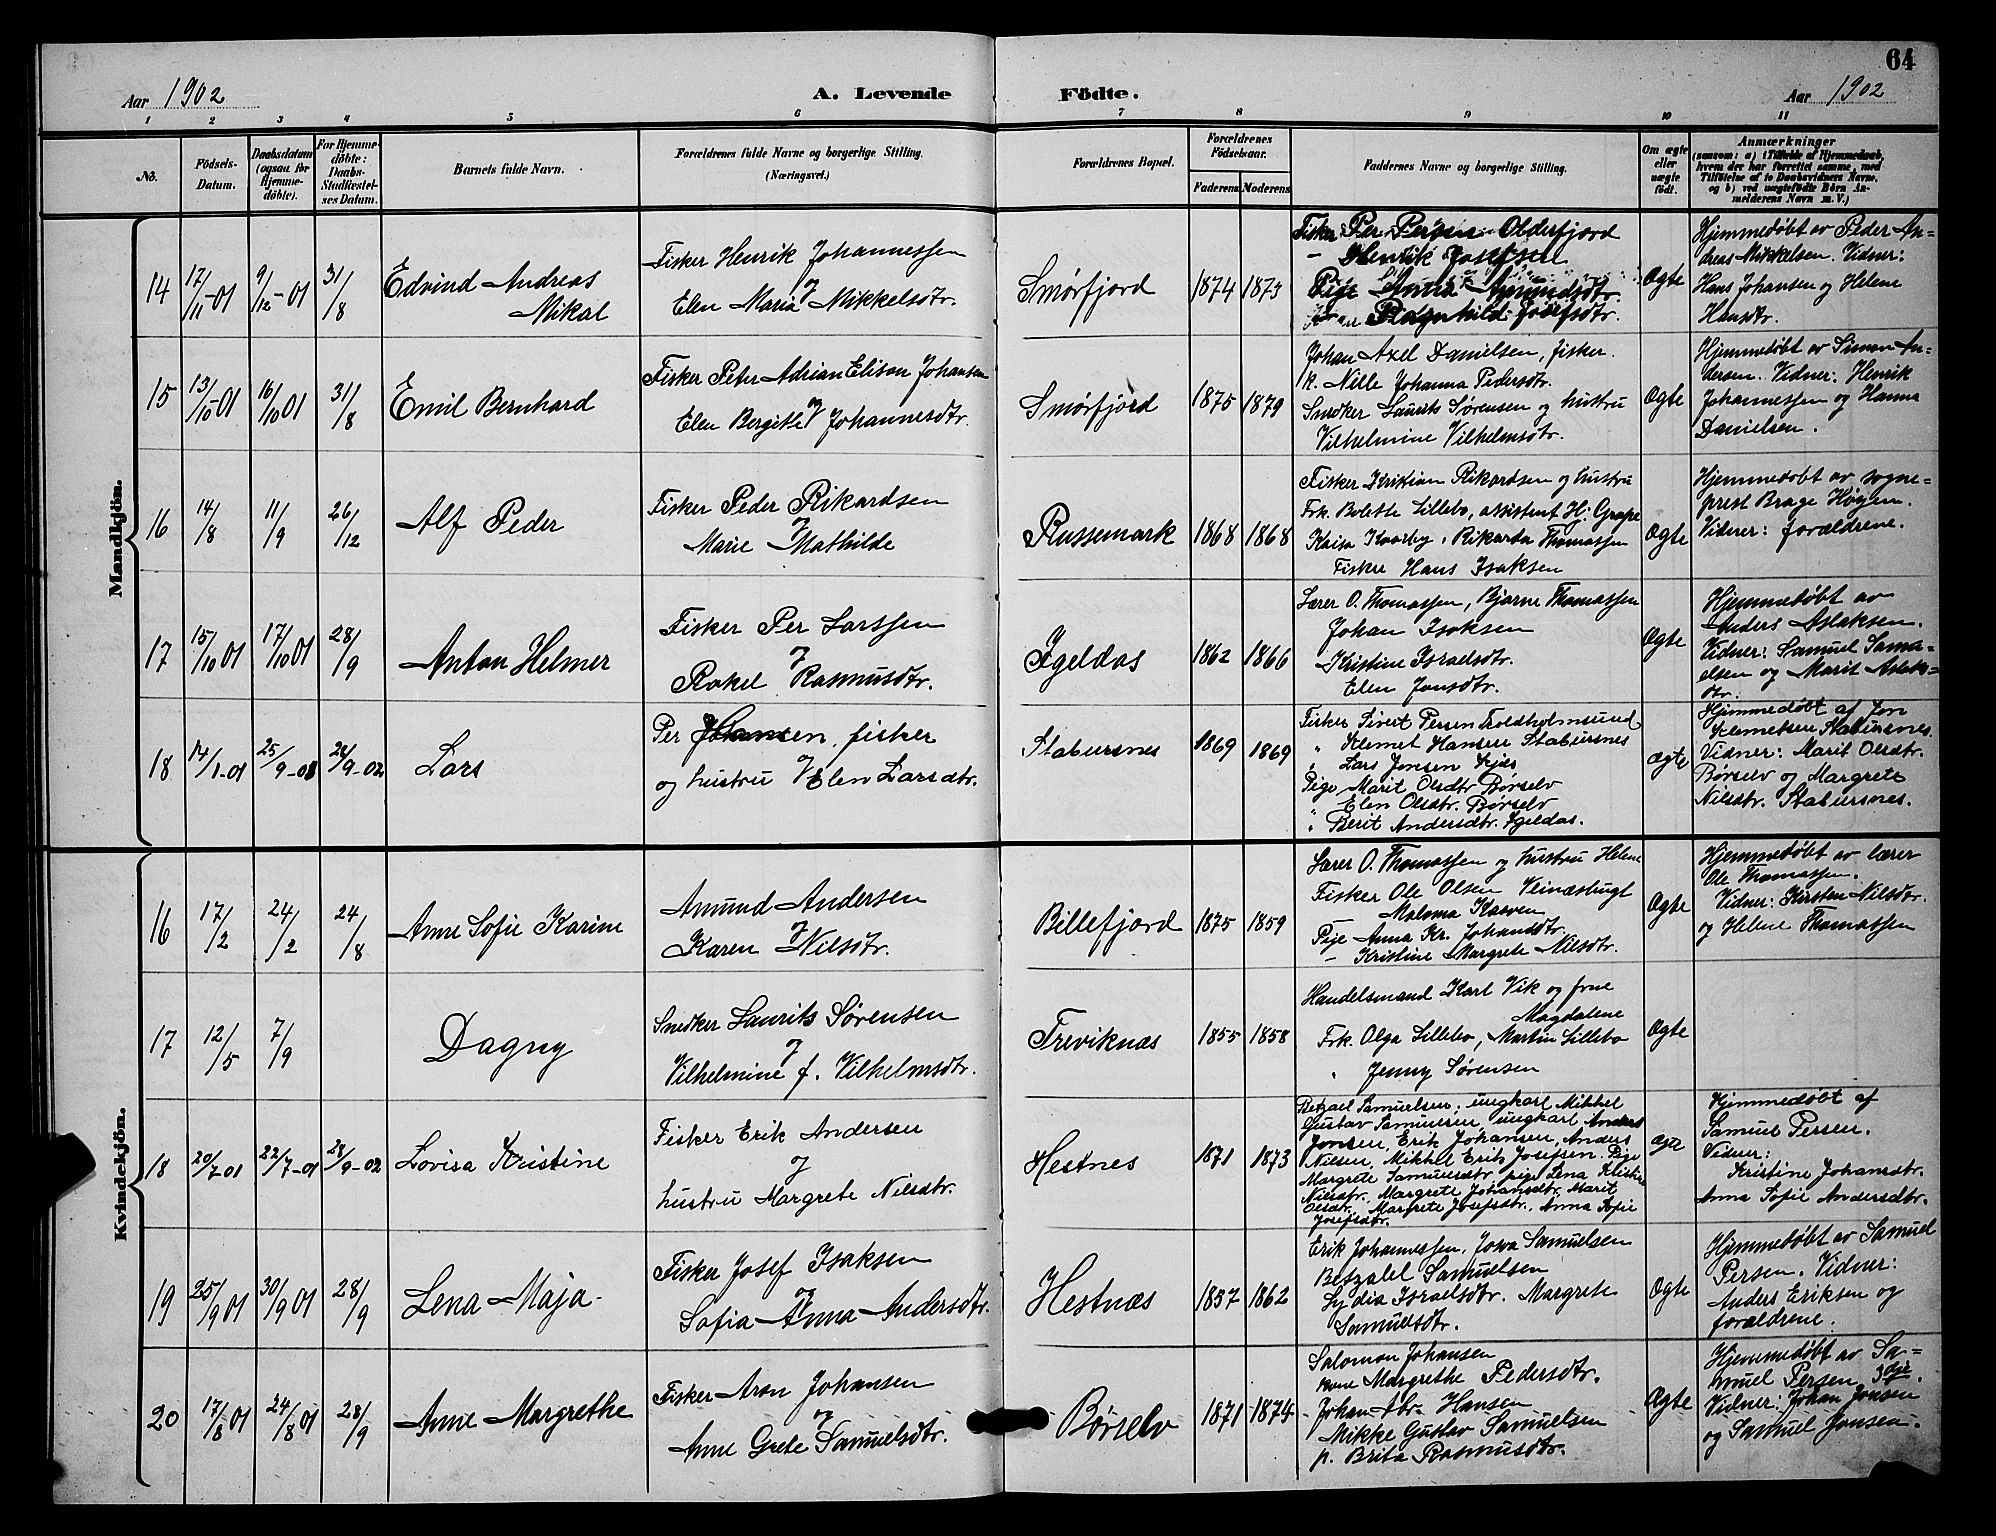 64
Aar 1902
A. Levende
Födte.
Aar 1902
1 2 3 4 5 6 7 8 9 10 11
No.
Födsels-
Datum.
Daabsdatum
(ogsaa for
Hjemme-
döbte).
For Hjemme-
döbte:
Daabs-
Stadfæstel-
ses Datum.
Barnets fulde Navn.
Forældrenes fulde Navne og borgerlige Stilling.
(Næringsvei.)
Forældrenes Bopæl.
Forældrenes
Födselsaar.
Faderens
Moderens
Faddernes Navne og borgerlige Stilling.
Om ægte
eller
uægte
födt.
Anmærkninger
(saasom: a) i Tilfælde af Hjemmedaab,
hvem der har forrettet samme, med
Tilföielse af to Daabsvidners Navne,
og b) ved uægtefödte Börn An-
melderens Navn m. V.)
Mandkjön.
14
12/11-01
9/12-01
31/8
Edvind Andreas
Mikal
Fisker Henrik Johannessen
og
Elen Maria Mikkelsdtr.
Smørfjord
1874
1873
Fisker Per Persen Olderfjord
- Henrik Josefsen
Pige Anna Amundsdtr.
Ragnhild Josefsdtr.
Ægte
Hjemmedøbt av Peder An=
dreas Mikkelsen. Vidner:
Hans Johansen og Helene
Hansdtr.
15
13/10-01
16/10 01
31/8
Emil Bernhard
Fisker Peter Adrian Elison Johansen
og
Elen Bergitte Johannesdtr.
Smørfjord
1875
1879
Johan Axel Danielsen, fisker.
k. Nille Johanna Pedersdtr.
Snedker Laurits Sørensen og hustru
Vilhelmine Vilhelmsdtr.
Ægte
Hjemmedøbt av Simon An=
dersen. Vidner: Henrik
Johannessen og Hanna
Danielsen.
16
14/8
11/9
26/12
Alf Peder
Fisker Peder Rikardsen
og
Marie Mathilde
Russemark
1868
1868
Fisker Kristian Rikardsen og hustru
Frk. Bolette Lillebo, assistent Hj. Grape
Kaisa Kaarby, Rikarda Thomassen
Fisker Hans Isaksen
Ægte
Hjemmedøbt av sogne=
prest Brage Høyem.
Vidner: forældrene.
17
15/10 01
17/10 01
28/9
Anton Helmer
Fisker Per Larssen
og
Rakel Rasmusdtr.
Igeldas
1862
1866
Lærer O. Thomassen, Bjarne Thomassen
Johan Isaksen
Kristine Israelsdtr.
Elen Jonsdtr.
Ægte
Hjemmedøbt av
Anders Aslaksen.
Vidner: Samuel Samu=
elsen og Marit Aslaks=
dtr.
18
14/1-01
25/9-01
28/9-02
Lars
Per Hansen, fisker
og
og hustru Elen Larsdtr.
Stabursnes
1869
1869
Fisker Sivert Persen Troldholmsund
" Klemet Hansen Stabursnes
" Lars Jonsen Kjæs
Pige Marit Olsdtr Børselv
" Elen Olsdtr. Børselv
" Berit Andersdtr. Igeldas.
ægte
Hjemmedøbt af Jon
Klemetsen Stabursnes.
Vidner: Marit Olsdtr.
Børselv og Margrete
Nilsdtr. Stabursnes.
Kvindekjön.
16
17/2
24/2
24/8
Anne Sofie Karine
Amund Andersen
og
Karen Nilsdtr.
Billefjord
1875
1859
Lærer O. Thomassen og hustru Helene
Fisker Ole Olsen Veinæsbugt
Maloma Kaaven
Pige Anna Kr. Johansdtr.
- Kristine Margrete Nilsdtr.
Ægte
Hjemmedøbt av lærer
Ole Thomassen.
Vidner: Kirsten Nilsdtr.
og Helene Thomassen
17
12/5
7/9
Dagny
Snedker Laurits Sørensen
og
Vilhelmine f. Vilhelmsdtr.
Treviknæs
1855
1858
Handelsmand Karl Vik og frue
Magdalene
Frk. Olga Lillebo, Martin Lillebo
" Jenny Sørensen
Ægte
18
20/7 01
22/7-01
28/9-02
Lovisa Kristine
Fisker Erik Andersen
og
hustru Margrete Nilsdtr.
Hestnes
1871
1873
Betzael Samuelsen; ungkarl Mikkel
Gustav Samuelsen, ungkarl Anders
Jonsen, Erik Johansen, Anders
Nilsen, Mikkel Erits Josefsen. Pige
Margrete Samuelsdtr. pige Lena Kristine
Nilsdtr., Margrete Johansdtr., Marit
Olsdtr., Margrete Josefsdtr., Anna Sofie
Josefsdtr.
ægte
Hjemmedøbt af
Samuel Persen.
Vidner:
Kristine Johansdtr.
Anna Sofie Andersdtr.
19
25/9 01
30/9 01
28/9
Lena Maja
Fisker Josef Isaksen
og
Sofia Anna Andersdtr.
Hestnæs
1857
1862
Erik Johannessen, Josva Samuelsen
Betzalel Samuelsen
Lydia Israelsdtr. Margrete
Samuelsdtr.
Ægte
Hjemmedøbt av Samuel
Persen. Vidner:
Anders Eriksen og
forældrene.
20
17/8 01
24/8 01
28/9
Anne Margrethe
Fisker Aron Johansen
og
Anne Grete Samuelsdtr.
Børselv
1871
1874
Salomon Johansen
kone Margrethe Pedersdtr.
Johan Abr. Hansen
Mikke Gustav Samuelsen
p. Brita Rasmusdtr.
Ægte
Hjemmedøbt av Sa=
muel Persen
Vidner: Johan Jonsen
og Samuel Jonsen.